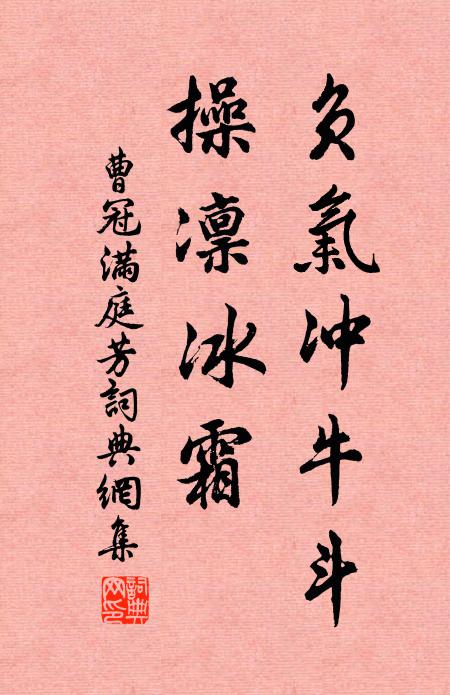 负氣冲牛斗
操凛冰霜
曹冠滿庭芳詞典網集
詞典网印